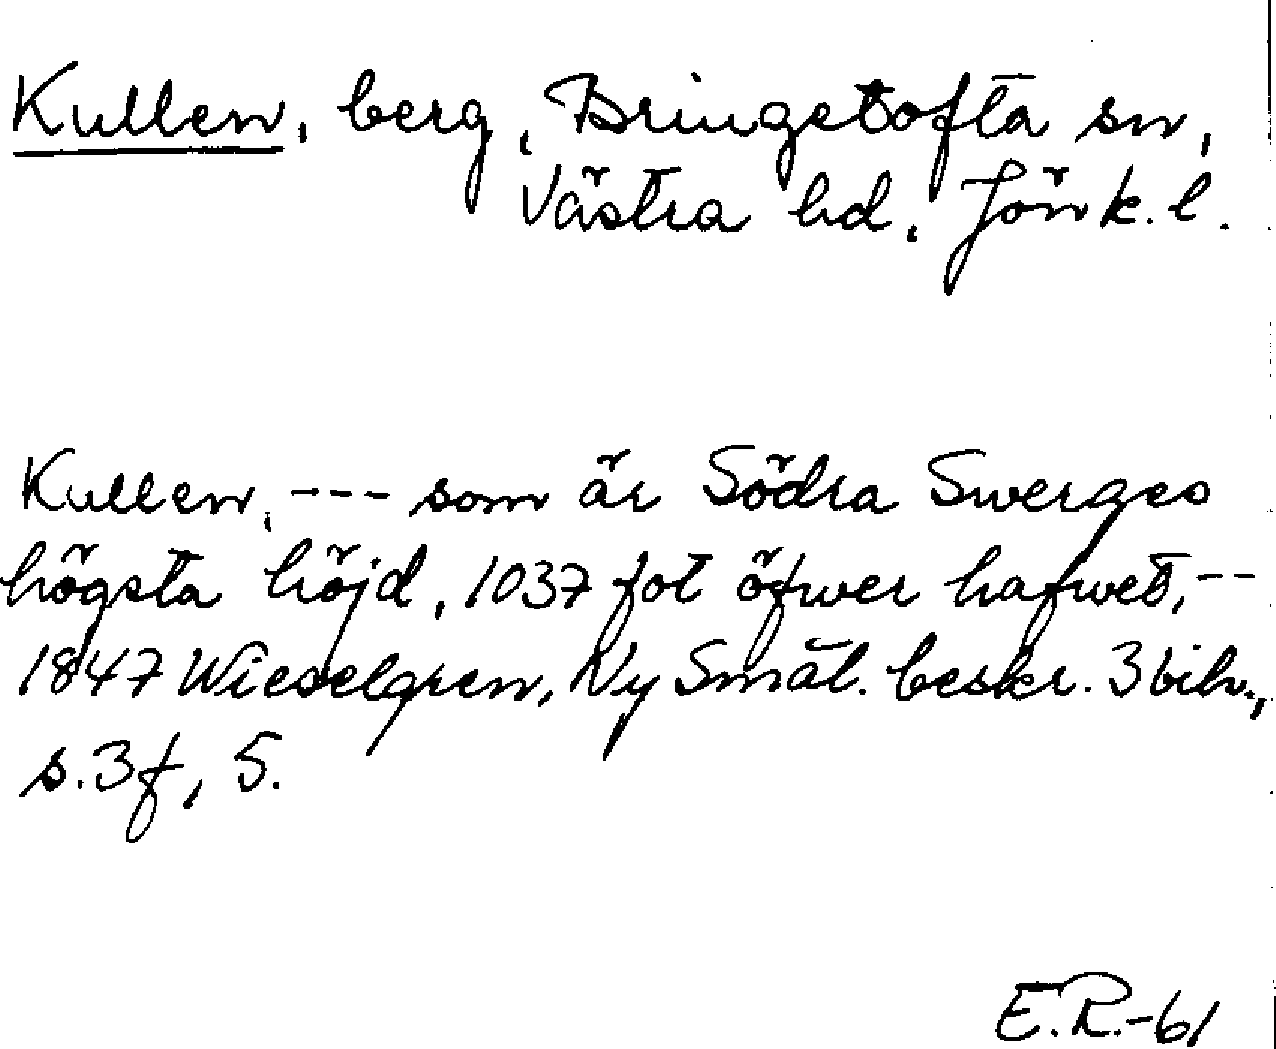 Kullen, berg, Bringetofta sn,
Västra hd, Jönk. l.
Kullen, --- som är Södra Swerges
högsta höjd, 1037 fot öfwer hafwet, --
1847 Wieselgren, Ny Smål. beskr. 3 bih.,
s. 3f, 5.
E.R.-61